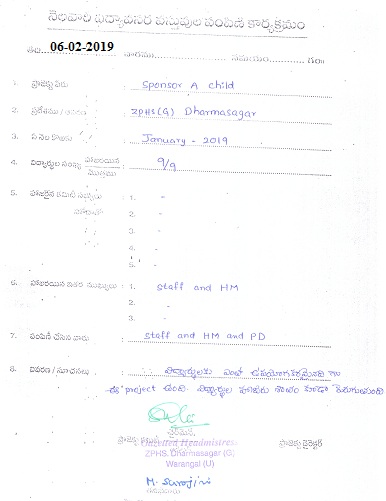 నెలవారి విద్యావసర వస్తువుల పంపిణి కార్యక్రమం
తేది: 06-02-2019 వారము: సమయం: గం॥
1. ప్రాజెక్టు పేరు : Sponsor A child
2. ప్రదేశము / : ZPHS(G) Dharmasagar
3. ఏ నెల కొరకు : January - 2019
4. విద్యార్థుల సంఖ్య హాజరయిన / మొత్తము : 9/9
5. హాజరైన కమిటీ సభ్యుల : 1. -
2. -
3. -
4. -
5. -
6. హాజరయిన ఇతర ముఖ్యులు : 1. staff and HM
2. -
3. -
7. పంపిణి చేసిన వారు : staff and HM and PD
8. వివరణ / సూచనలు : విద్యార్థులకు ఎంతో ఉపయోగకరమైనది గా
ఈ project ఉంది. విద్యార్థుల హాజరు శాతం కూడా పెరుగుతుంది
చైర్మెన్
ప్రాజెక్టు Gazetted Headmistress ప్రాజెక్టు డైరెక్టర్
ZPHS. Dharmasagar (G)
Warangal (U)
M. Suroji